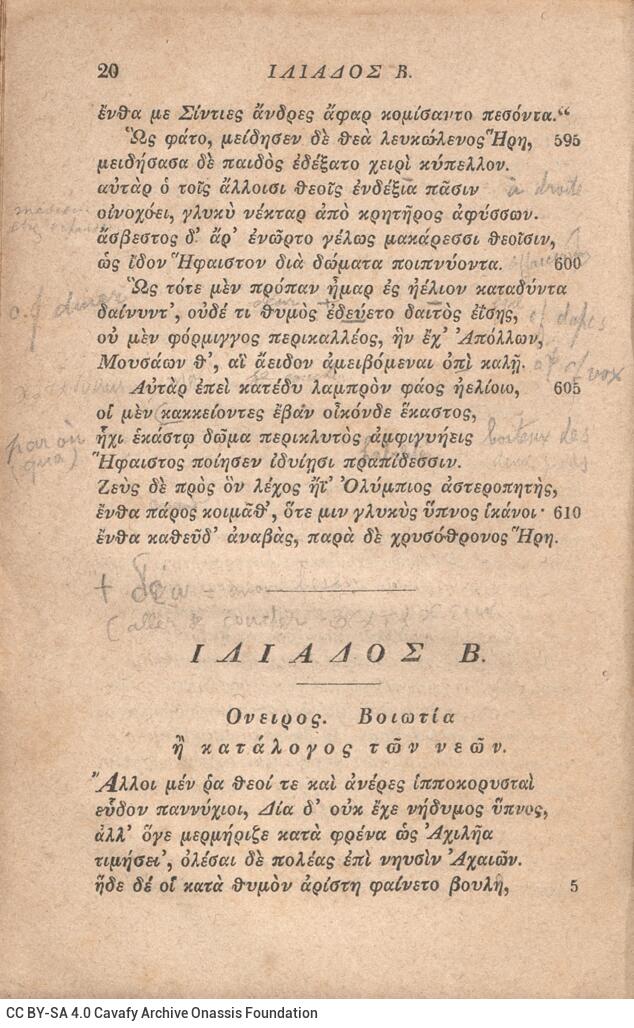 20 ΙΛΙΑΔΟΣ Β.
ἔνθα με Σίντιες ἄνδρες ἄφαρ κομίσαντο πεσόντα.“
Ὣς φάτο, μείδησεν δὲ θεὰ λευκώλενος Ἥρη, 595
μειδήσασα δὲ παιδὸς ἐδέξατο χειρὶ κύπελλον.
αὐτὰρ ὁ τοῖς ἄλλοισι θεοῖς ἐνδέξια πᾶσιν à droite
οἰνοχόει, γλυκὺ νέκταρ ἀπὸ κρητῆρος ἀφύσσων.
ἄσβεστος δ᾽ ἄρ᾽ ἐνῶρτο γέλως μακάρεσσι θεοῖσιν,
ὡς ἴδον Ἥφαιστον διὰ δώματα ποιπνύοντα. 600
Ὣς τότε μὲν πρόπαν ἦμαρ ἐς ἠέλιον καταδύντα
δαίνυντ᾽, οὐδέ τι θυμὸς ἐδεύετο δαιτὸς ἐΐσης,
οὐ μὲν φόρμιγγος περικαλλέος, ἣν ἔχ᾽ Ἀπόλλων,
Μουσάων θ᾽, αἳ ἄειδον ἀμειβόμεναι ὀπὶ καλῇ.
Αὐτὰρ ἐπεὶ κατέδυ λαμπρὸν φάος ἠελίοιο, 605
οἱ μὲν κακκείοντες ἔβαν οἶκόνδε ἕκαστος,
par où (qua)
ἧχι ἑκάστῳ δῶμα περικλυτὸς ἀμφιγυήεις boiteux des
Ἥφαιστος ποίησεν ἰδυίῃσι πραπίδεσσιν.
Ζεὺς δὲ πρὸς ὃν λέχος ἤϊ᾽ Ὀλύμπιος ἀστεροπητής,
ἔνθα πάρος κοιμᾶθ᾽, ὅτε μιν γλυκὺς ὕπνος ἱκάνοι· 610
ἔνθα καθεῦδ᾽ ἀναβάς, παρὰ δὲ χρυσόθρονος Ἥρη.
ΙΛΙΑΔΟΣ Β.
Ονειρος. Βοιωτία
ἢ κατάλογος τῶν νεῶν.
Ἄλλοι μέν ῥα θεοί τε καὶ ἀνέρες ἱπποκορυσταὶ
εὗδον παννύχιοι, Δία δ᾽ οὐκ ἔχε νήδυμος ὕπνος,
ἀλλ᾽ ὅγε μερμήριζε κατὰ φρένα ὡς Ἀχιλῆα
τιμήσει᾽, ὀλέσαι δὲ πολέας ἐπὶ νηυσὶν Ἀχαιῶν.
ἥδε δέ οἱ κατὰ θυμὸν ἀρίστη φαίνετο βουλή, 5
CC BY-SA 4.0 Cavafy Archive Onassis Foundation